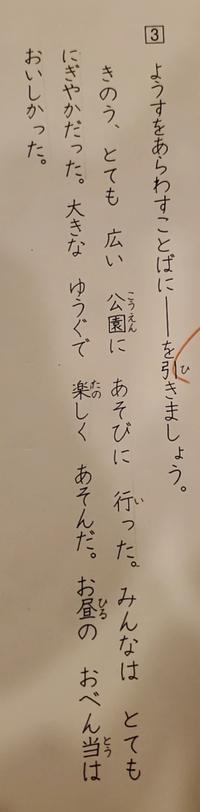 3 ようすをあらわすことばに――を引きましょう。
ひ
きのう、とても 広い 公園に あそびに 行った。みんなは とても
こうえん い
にぎやかだった。大きな ゆうぐで 楽しく あそんだ。お昼の おべん当は
たの ひる とう
おいしかった。